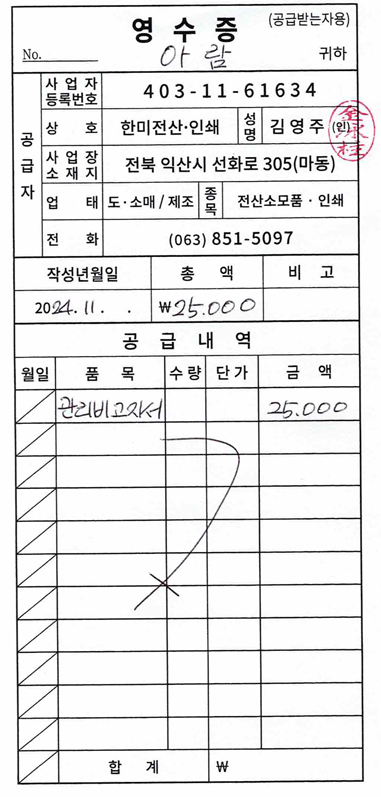 영 수 증 (공급받는자용)
No. 아 람 귀하
공급자
사 업 자 등록번호 403-11-61634
상 호 한미전산·인쇄 성명 김 영 주 (인)
사 업 장 소 재 지 전북 익산시 선화로 305(마동)
업 태 도·소매 / 제조 종목 전산소모품 · 인쇄
전 화 (063) 851-5097
작성년월일 총 액 비 고
2024. 11. . ₩25.000
공 급 내 역
월일 품 목 수 량 단 가 금 액
관리비고지서 25.000
합 계 ₩